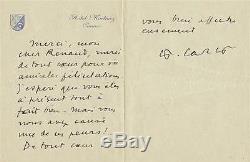 Merci, mon
cher Renaud, merci
de tout cœur pour vos
amicales félicitations
J'espère que vous êtes
à présent tout à
fait bien - Mais vous
nous avez causé
une de ces peurs!
De tout cœur
vous bien affectu
eusement